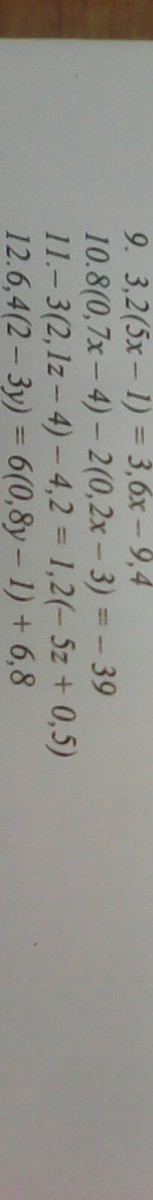 9. 3,2(5x – 1) = 3,6x – 9,4
10.8(0,7x – 4) – 2(0,2x – 3) = – 39
11.– 3(2,1z – 4) – 4,2 = 1,2(– 5z + 0,5)
12.6,4(2 – 3y) = 6(0,8y – 1) + 6,8